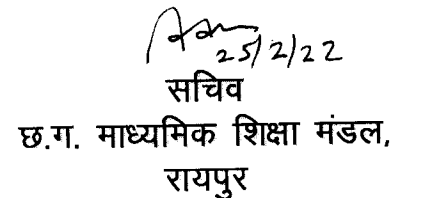 25/2/22
सचिव
छ.ग. माध्यमिक शिक्षा मंडल,
रायपुर